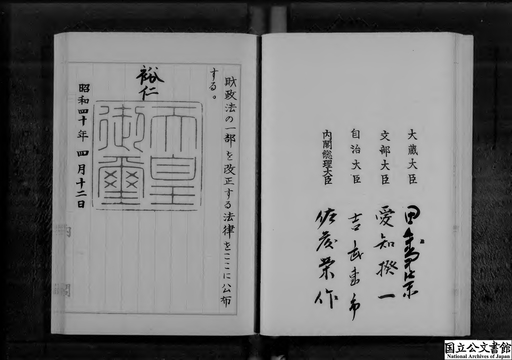 大蔵大臣 田中角栄
文部大臣 愛知揆一
自治大臣 吉武恵市
内閣総理大臣 佐藤栄作
財政法の一部を改正する法律をここに公布
する。
裕仁
天皇
御璽
昭和四十年四月十二日
国立公文書館
National Archives of Japan